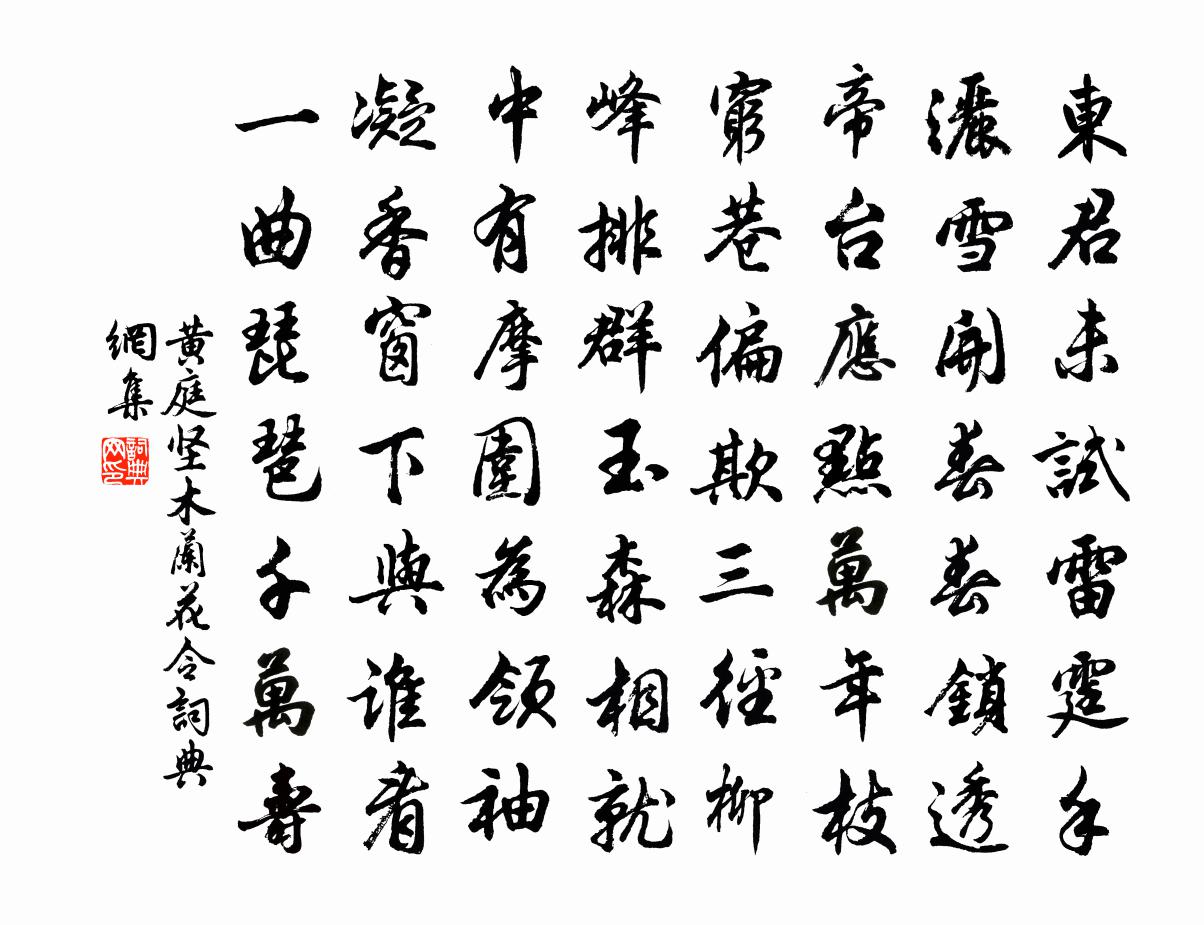 東君未試雷霆手
灑雪開春春鎖透
帝台應點萬年枝
窮巷偏欺三徑柳
峰排群玉森相就
中有摩圍為領袖
凝香窗下與誰看
一曲琵琶千萬壽
黄庭坚木蘭花令詞典
網集
詞典